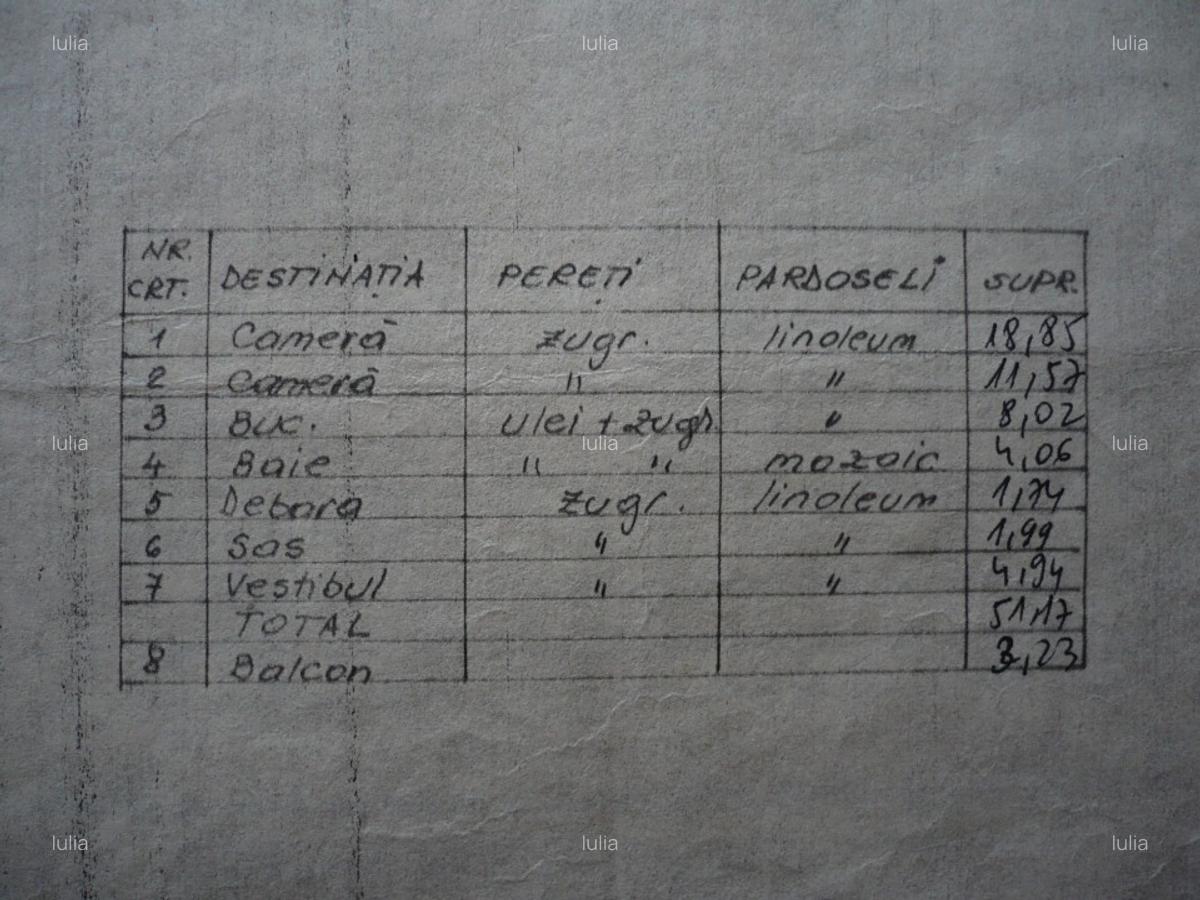 Iulia Iulia Iulia
NR. CRT. DESTINAȚIA PEREȚI PARDOSELI SUPR.
1 Cameră zugr. linoleum 18,85
2 Cameră " " 11,57
3 Buc. ulei + zugr. " 8,02
4 Baie " " mozaic 4,06
5 Debara zugr. linoleum 1,74
6 Sas " " 1,99
7 Vestibul " " 4,94
TOTAL 51,17
8 Balcon 3,23
Iulia Iulia Iulia
Iulia Iulia Iulia